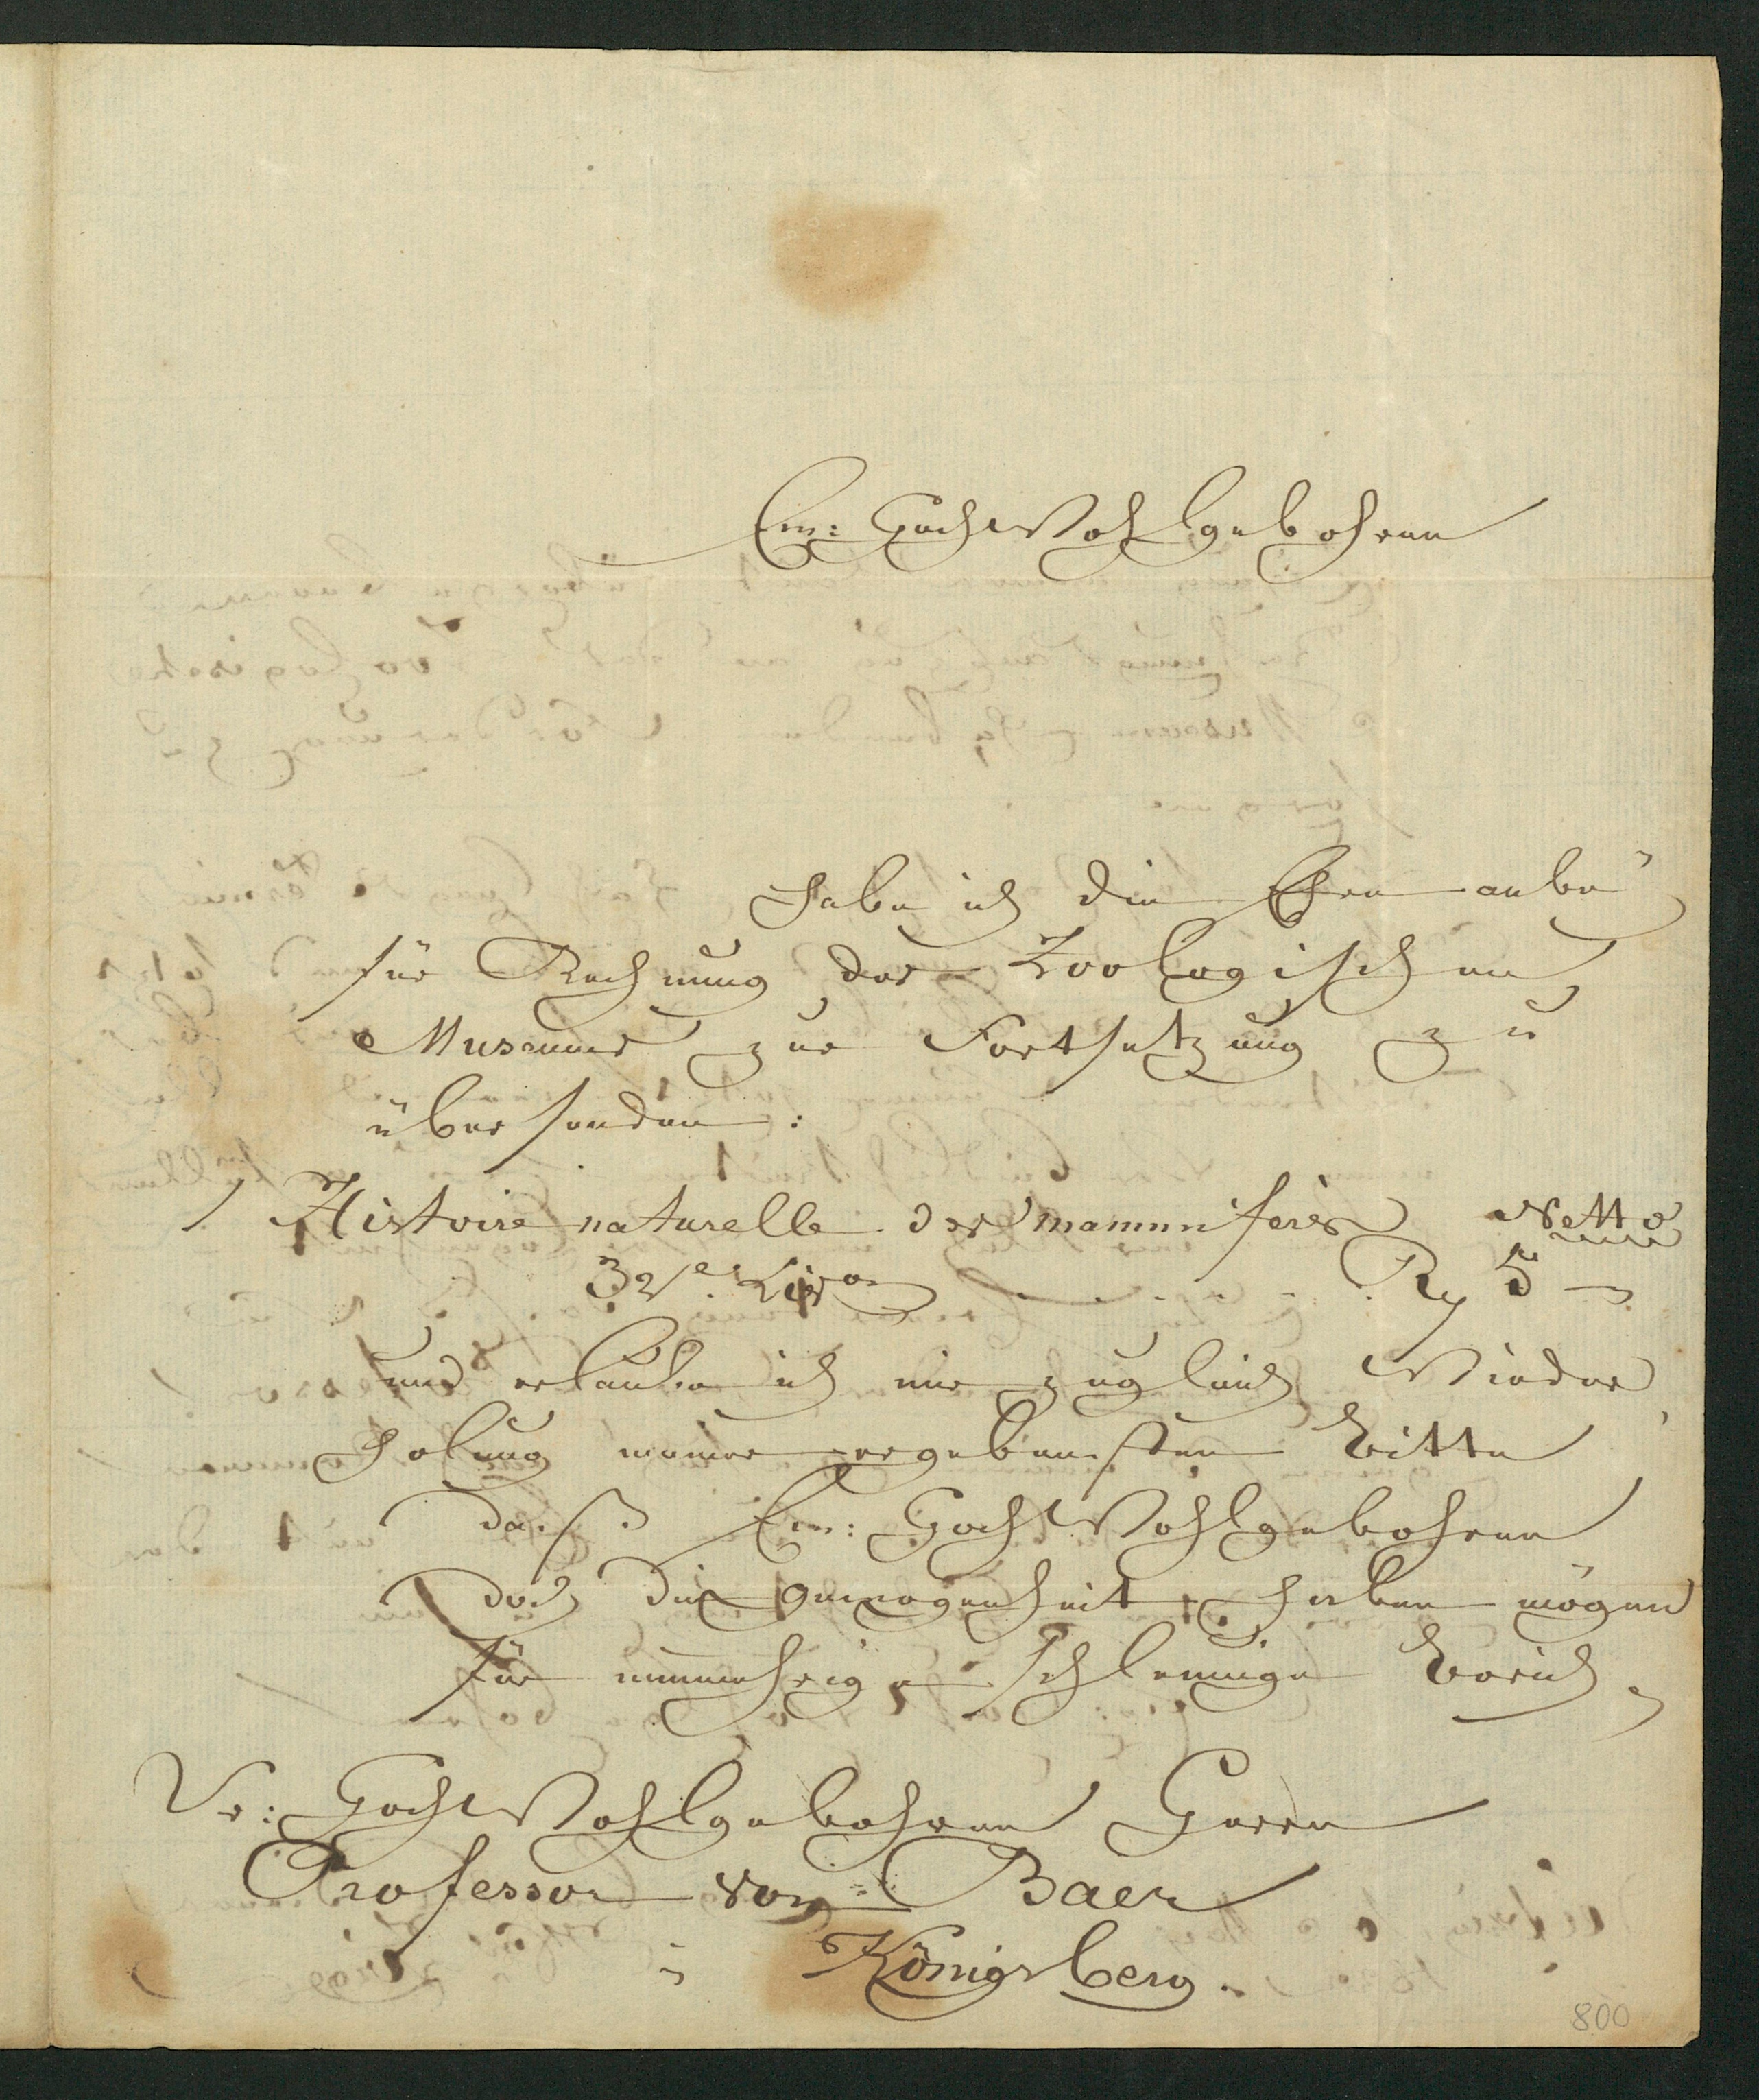 Ew: HochWohlgebohren
habe ich die Ehre anbei
für Rechnung des Zoologischen
Museums zur Fortsetzung zu
übersenden:
1 Histoire naturelle des mammiferes Netto
32e Livon . . . . . . Rg 5 —
und erlaube ich mir zugleich Wieder
holung meiner ergebensten Bitte
daß Ew: HochWohlgebohren
doch die gewogenheit haben mögen
für nunmehrige schleunige Berich
Sr: HochWohlgebohren Herrn
Professor von Baer
Königsberg.
800